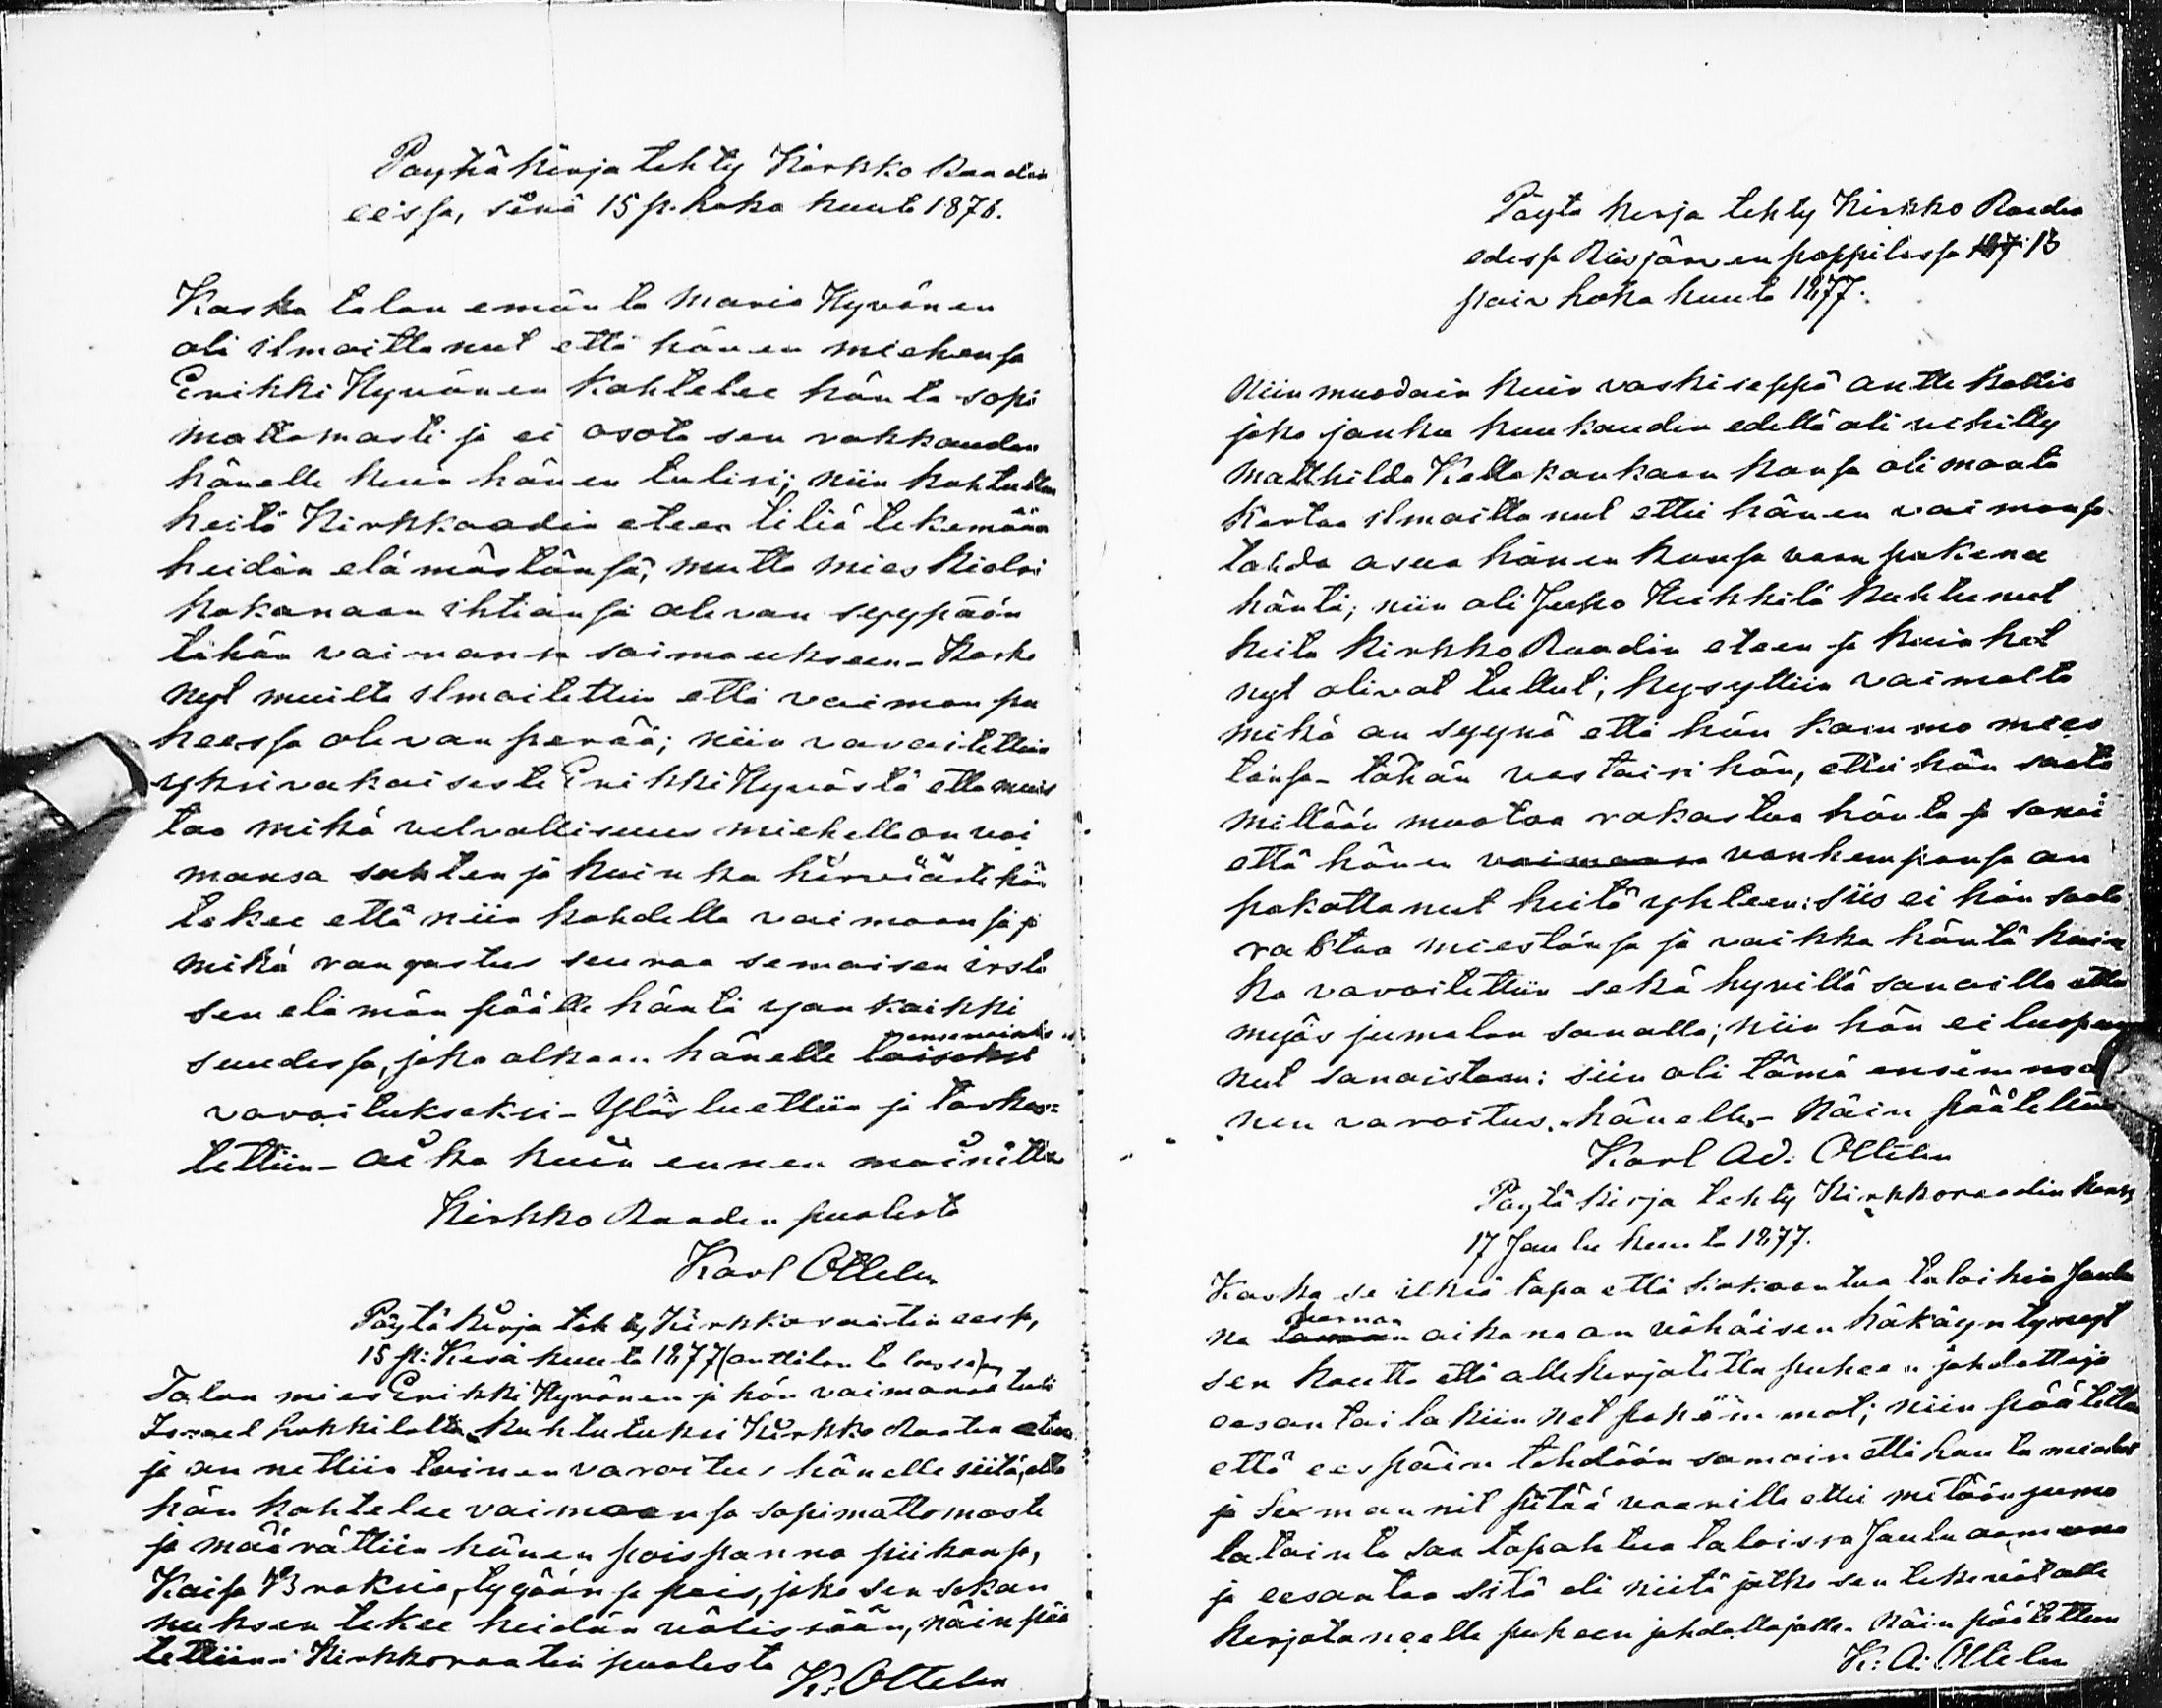 Pöytä kirja tehty Kirkko Raadin
eissa, sinä 15 p. loka kuuta 1876.
Koska talon emäntä Maria Hyvönen
oli ilmoittanut että hänen miehensä
Erikki Hyvönen kohtelee häntä sopi
mattomasti ja ei osota sen rakkauden
hänelle kuin hänen tulisi; niin kohtuttin
heitä Kirkkoadin eteen tiliä tekemään
heidän elämästänsä; mutta mies kielsi
kokonaan ihtiänsä olevan syypään
tähän vaimonsa soimaukseen - Koska
nyt muilta ilmoitettiin että vaimon pu
heessa olevan perää; niin varoitettiin
yksivakaisesti Erikki Hyvöstä että muis
taa mikä velvallisuus miehellä on vai
monsa suhten ja kuinka hirviästi hän
tekee että niin kohdella vaimoansa ja
mikä rangastus seuraa semaisen irsta
sen elämän päälle häntä ijan kaikki
suudessa, joka alkaan hänelle toiseksi
ensimäiseks
varoitukseksi - Ylösluettiin ja tarkas=
tettiin - aika kuin ennen mainittu
Kirkko Raadin puolesta
Karl Ottelin
Pöytä kirja tehty Kirkkoraatin eesä,
15 p: Kesä kuuta 1877 (anttilan talossa)
Talon mies Erikki Hyvönen ja hän vaimonsa tuli
Israel Lukkilalta kuhtutuksi Kirkko Raatin eteen
ja annettiin toinen varoitus hänelle siitä, että
hän kohtelee vaimoansa sopimattomasti
ja määrättiin hänen poispanna piikansa,
Kaisa tygöänsä pois, joka sen sekan
nuksen tekee heidän välissään, näin pää
tettiin - Kirkkoraatin puolesta
K. Ottelin
Pöytä kirja tehty Kirkko Raadin
edessä pappilassa 187 13
päiv loka kuuta 1877.
Niin muodoin kuin vaskiseppä antti Kallio
joka jonku kuukauden edellä oli vihitty
Mathilda Kellokankaan kansa oli monta
kertaa ilmoittanut ettei hänen vaimonsa
tahdo asua hänen kansa vaan pakenee
häntä; niin oli Jucko Kukkilä kuhtunut
heitä kirkko Raadin eteen ja kuin het
nyt olivat tullut; kysyttiin vaimolta
mikä on syynä että hän kammo mies
tänsä - tähän vastaisi hän, ettei hän saata
millään muotoa rakastaa häntä ja sanoi
että hänen vaimoan vanhempansa on
pakottanut heitä yhteen: siis ei hän saata
rakstaa miestänsä ja vaikka häntä kuin
ka varoitettiin sekä hyvillä sanoilla että
myös jumalan sanalla; niin hän ei luopu
nut sanoistaan: siin oli tämä ensimmäi
nen varoitus hänelle - Näin päätettiin
Karl Ad: Ottelin
Pöytä kirja tehty Kirkkoraadin kansa
17 Joulu kuuta 1877.
Koska se ilkiä tapa että kokoontua taloihin Joulu
na
aamun
taman aikana on vähäisen näkäyntynyt
sen kautta että allekirjotettu puheen johdattaja
eesantai lakiin net pahimmat; niin päätettiin
että eespäin tehdään samoin että
ja sexmannit pitää vaarilla ettei mitään juma
latointa saa tapahtua taloissa Joulu aamuna
ja eesantaa sitä eli niitä jotka sen tekevät alle
kirjotaneelle puheen johdattajalle. Näin päätettiin
K: A: Ottelin